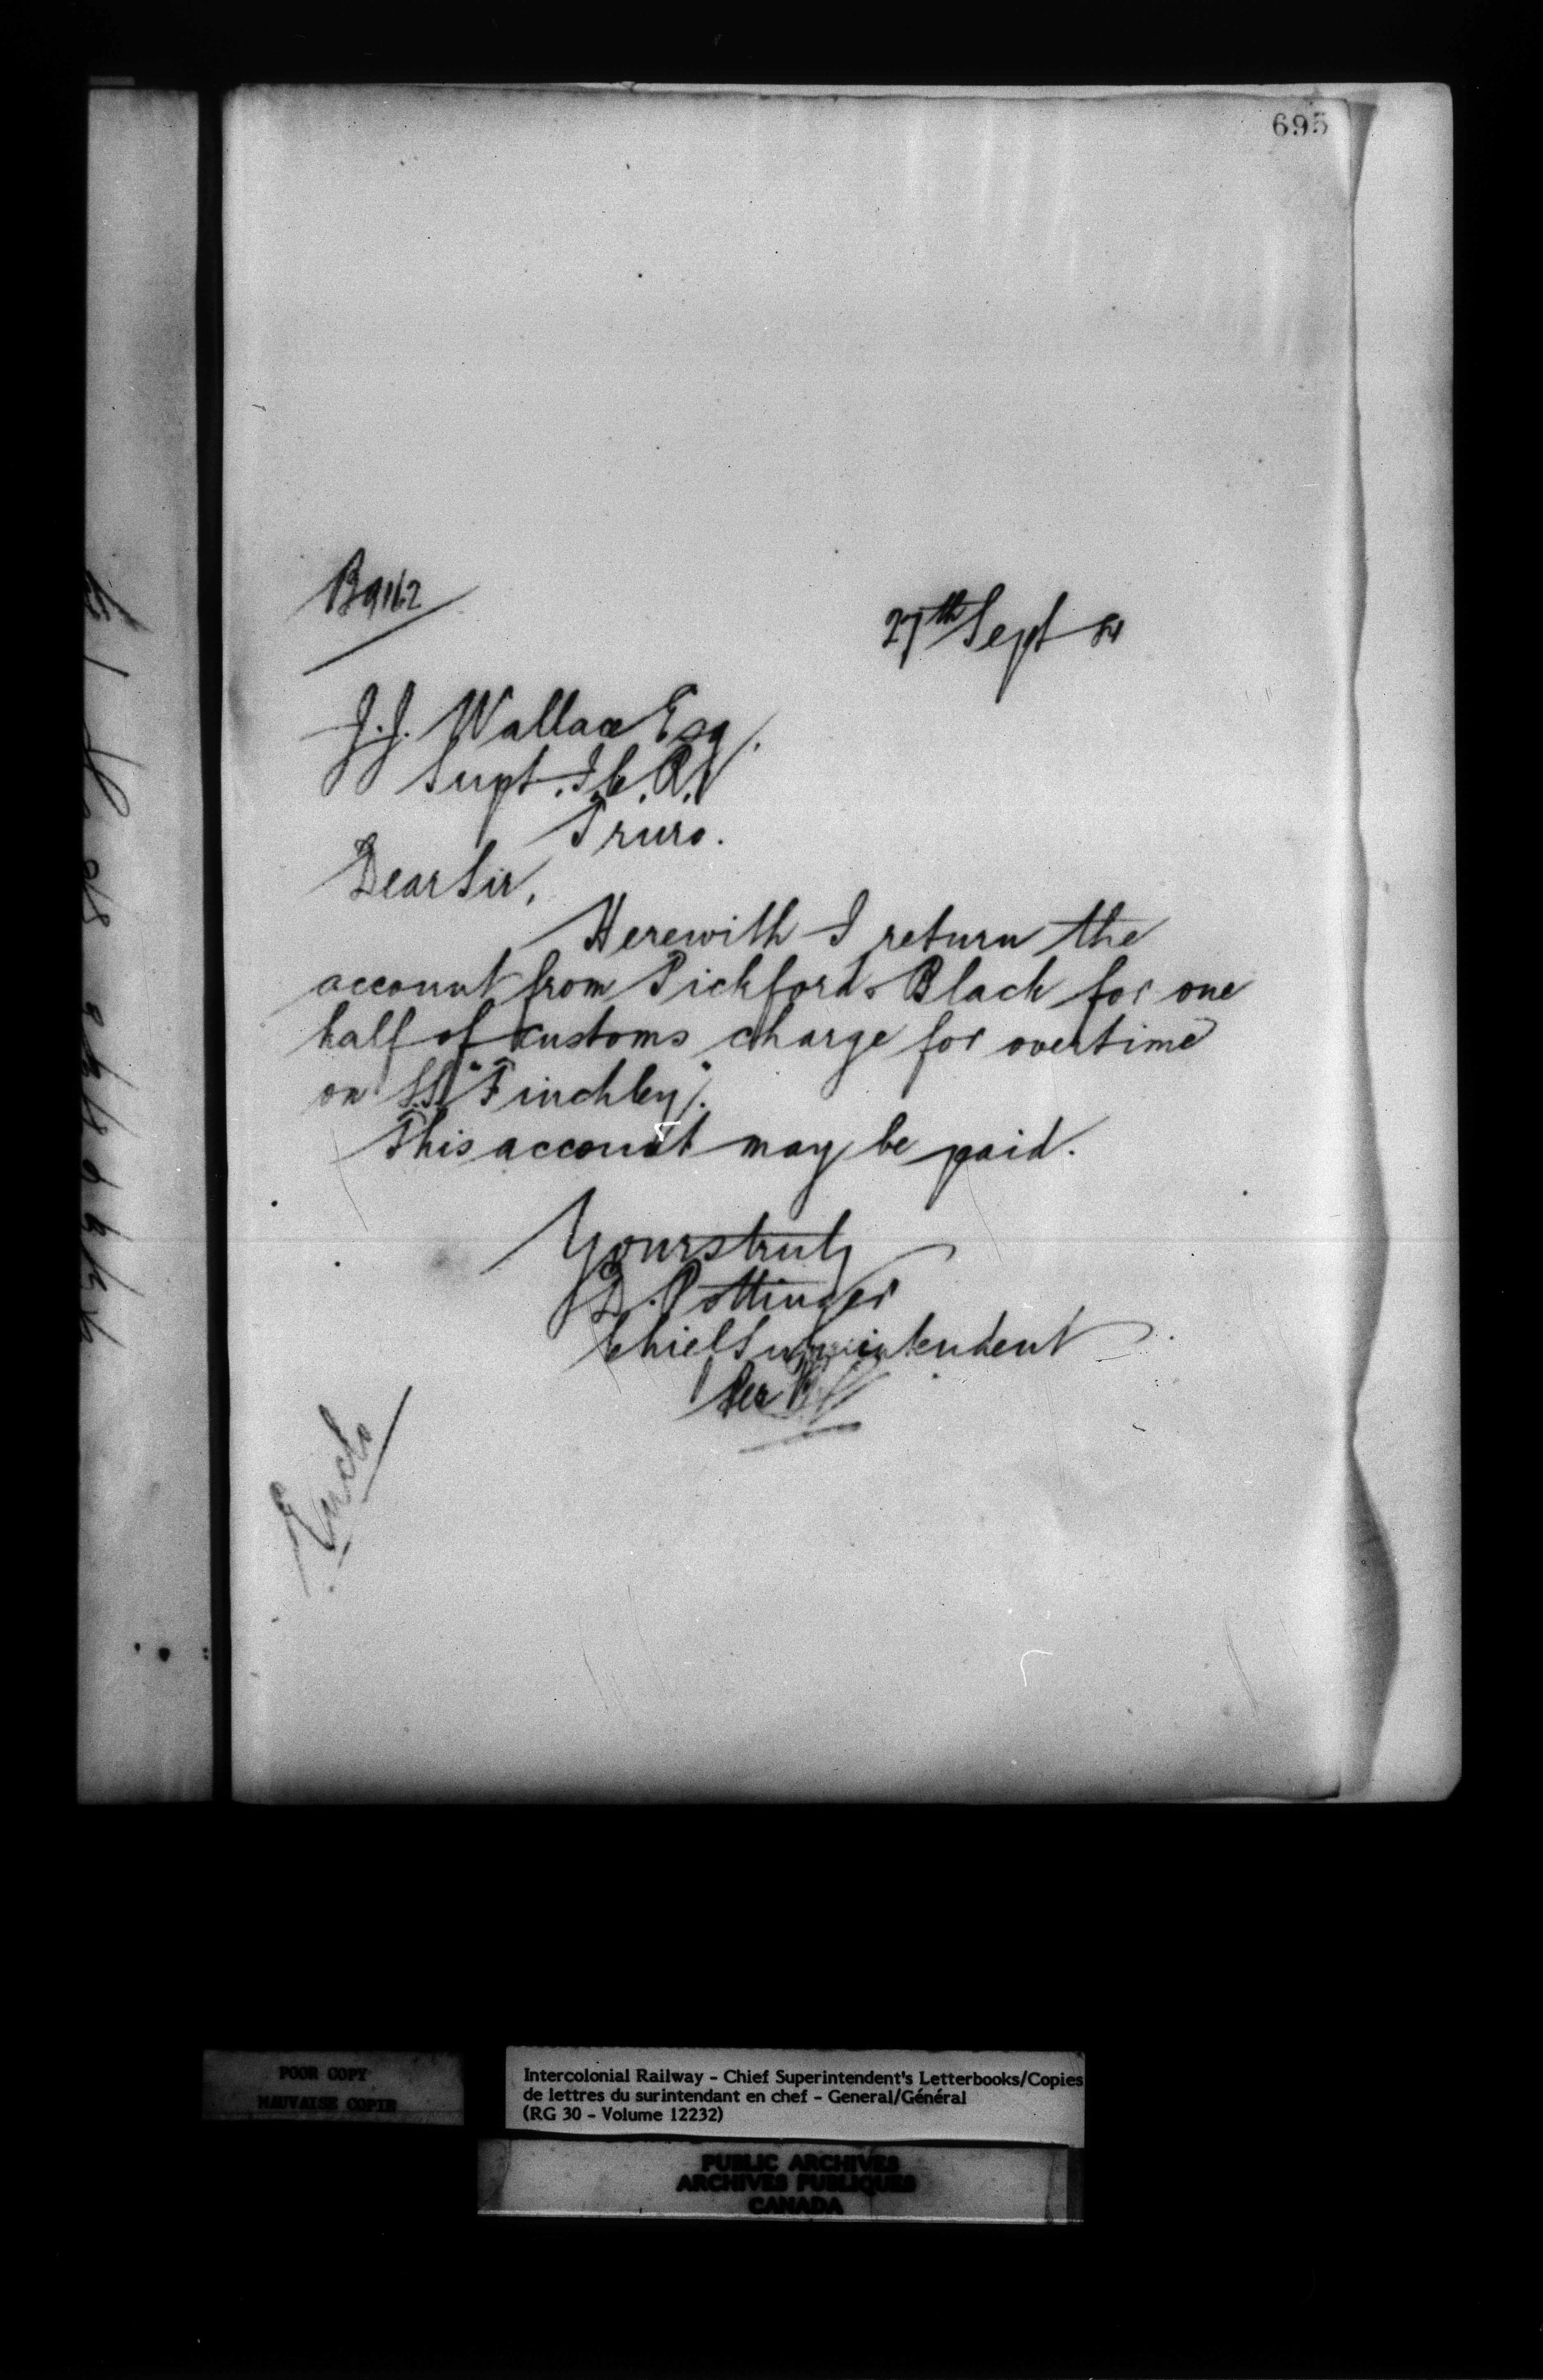 695
B9162
27th Sept 84
J.J. Wallace Esq.
Supt. I.C.R.
Truro.
Dear Sir,
Herewith I return the
account from Pickford & Black for one
half of customs charge for overtime
on S.S. "Finchley".
This account may be paid.
Yours truly
D. Pottinger
Chief Superintendent
Per
Enclo
POOR COPY
MAUVAISE COPIE
Intercolonial Railway - Chief Superintendent's Letterbooks/Copies
de lettres du surintendant en chef - General/Général
(RG 30 - Volume 12232)
PUBLIC ARCHIVES
ARCHIVES PUBLIQUES
CANADA